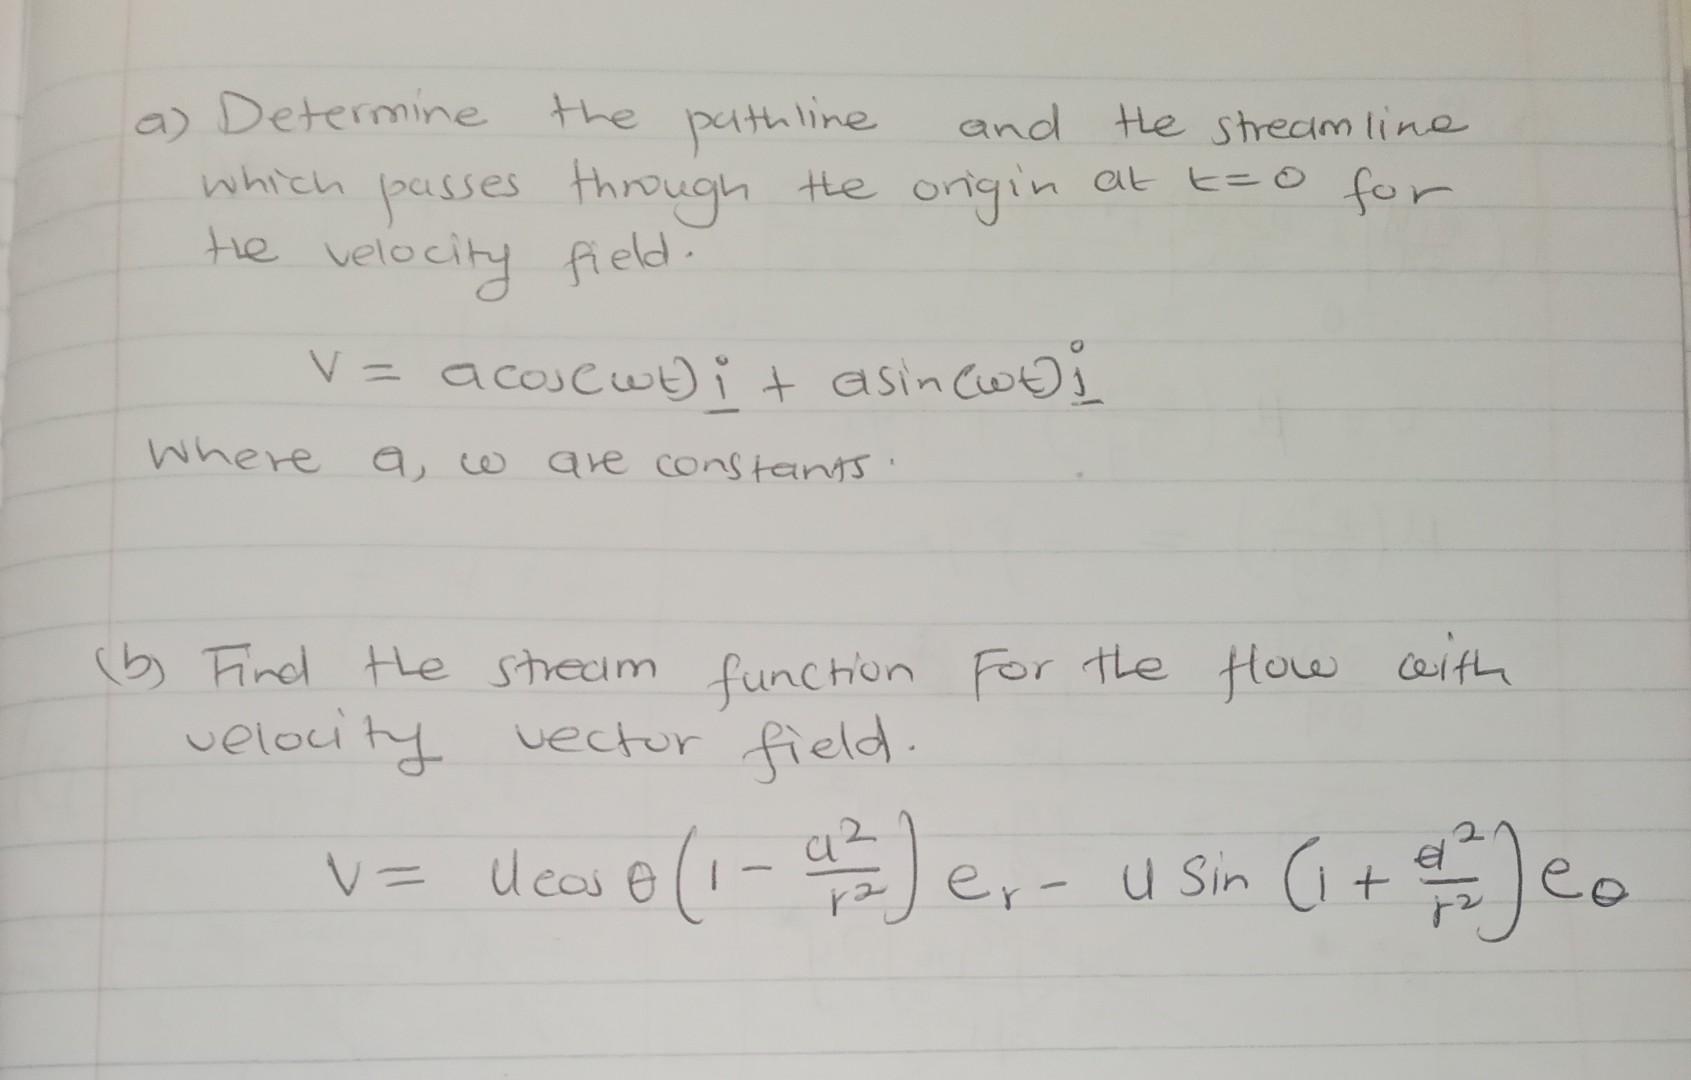 a) Determine the pathline and the streamline
which passes through the origin at t=0 for
the velocity field.
V = acos(ωt) i + asin(ωt) j
Where a, ω are constants.
(b) Find the stream function For the flow with
velocity vector field.
V = U cos θ (1 - a²/r²) e_r - U sin (1 + a²/r²) e_θ